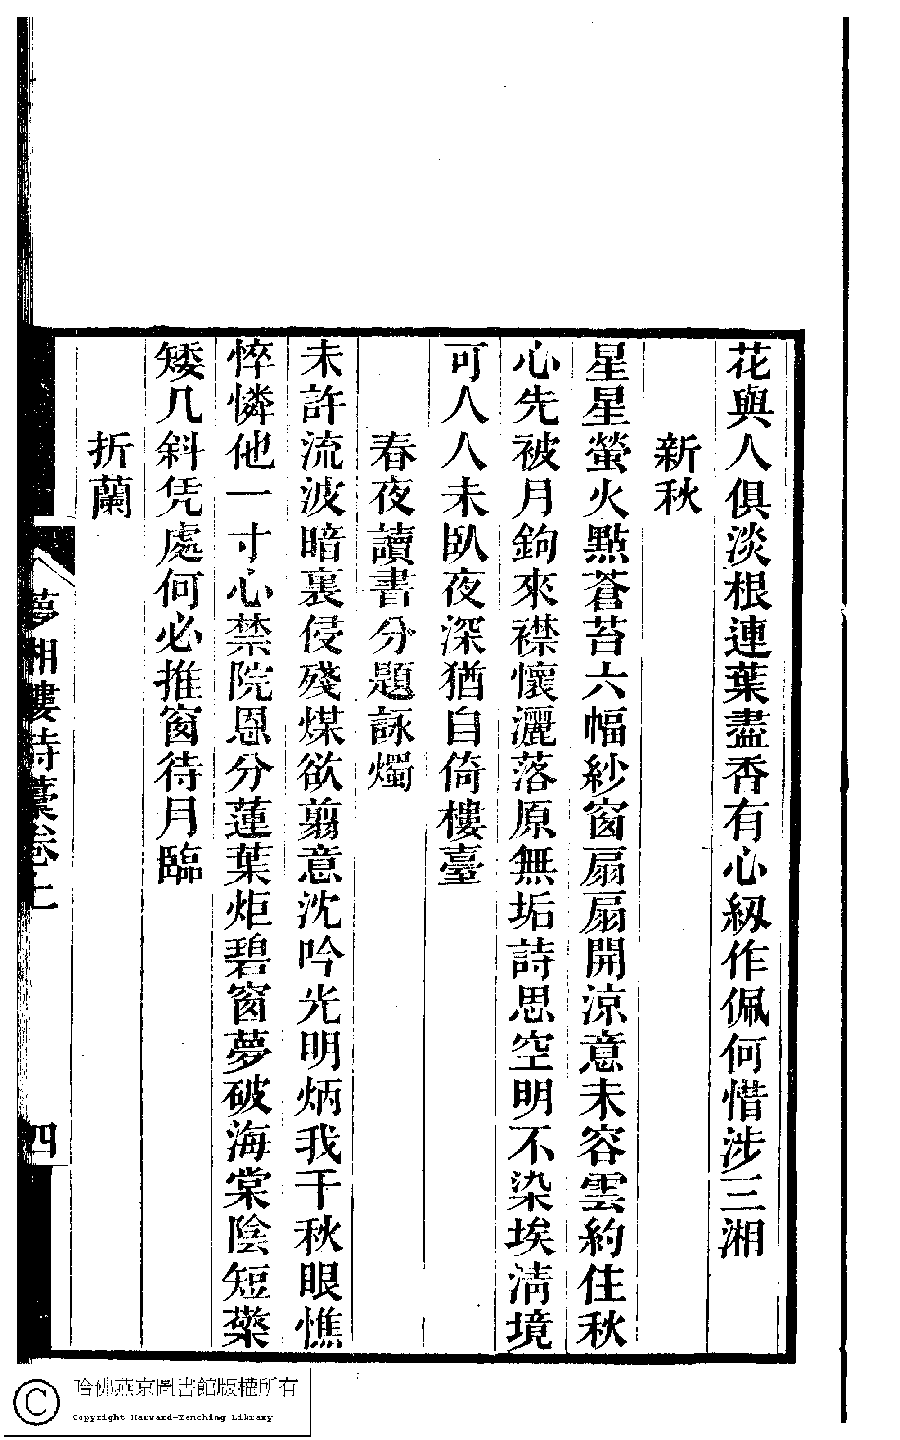 花與人俱淡根連葉盡香有心紉作佩何惜涉三湘
新秋
星星螢火點蒼苔六幅紗窗扇扇開涼意未容雲約住秋
心先被月鉤來襟懷灑落原無垢詩思空明不染埃淸境
可人人未臥夜深猶自倚樓臺
春夜讀書分題詠燭
未許流波暗裏侵殘煤欲翦意沈吟光明炳我千秋眼憔
悴憐他一寸心禁院恩分蓮葉炬碧窗夢破海棠陰短檠
矮几斜凭處何必推窗待月臨
折蘭
夢湘樓詩藳卷上
四
哈佛燕京圖書館版權所有
Copyright Harvard-Yenching Library